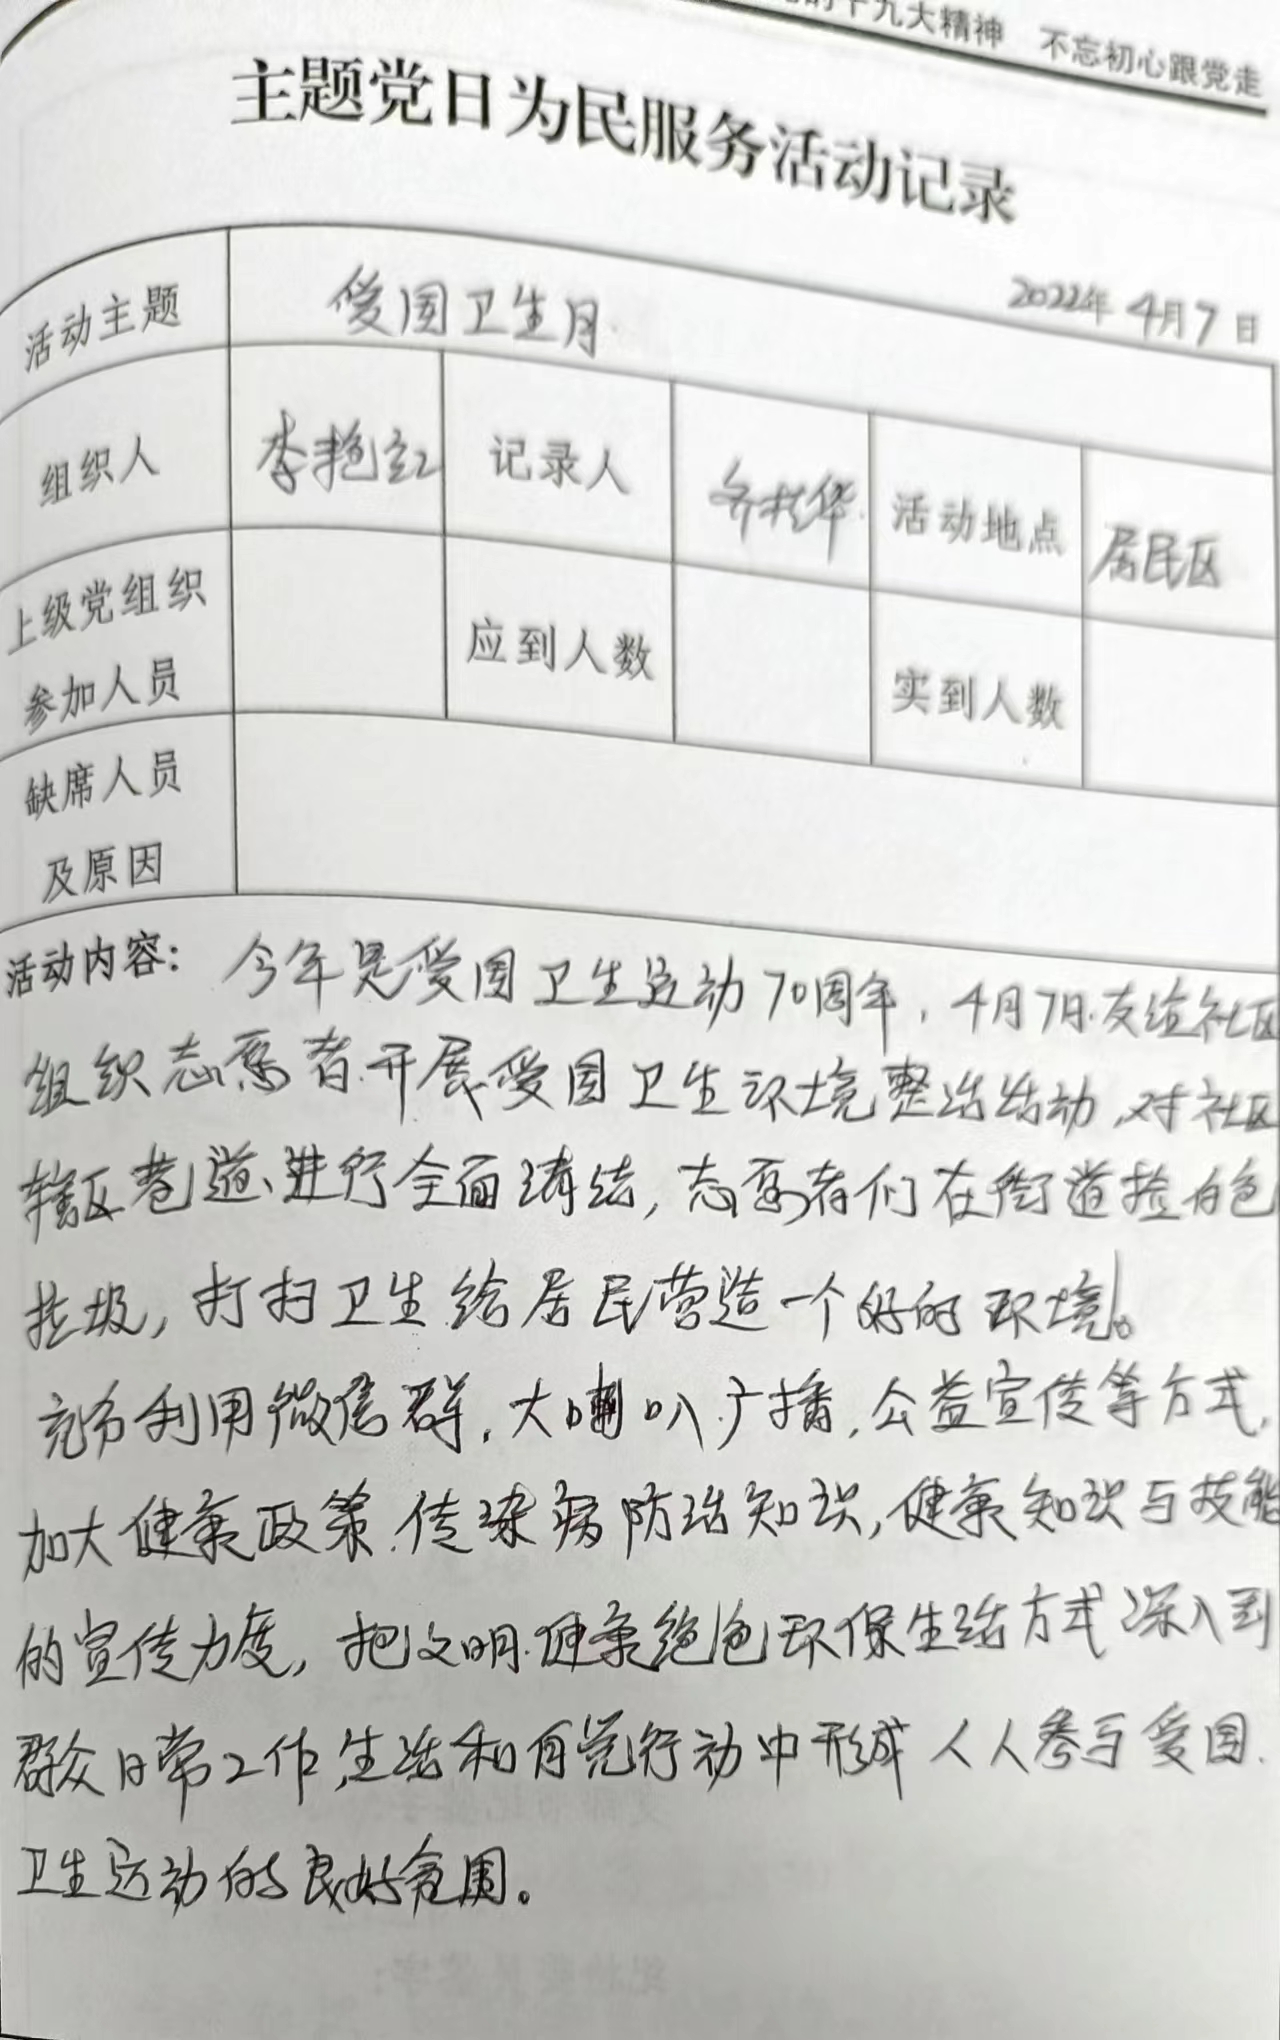 的十九大精神 不忘初心跟党走
主题党日为民服务活动记录
2022年4月7日
活动主题 爱国卫生月
组织人 李艳红 记录人 齐桂华 活动地点 居民区
上级党组织
参加人员 应到人数 实到人数
缺席人员
及原因
活动内容： 今年是爱国卫生运动70周年，4月7日.友谊社区
组织志愿者.开展爱国卫生环境整治活动,对社区
辖区巷道、进行全面清洁，志愿者们在街道捡白色
垃圾，打扫卫生给居民营造一个好的环境。
充分利用微信群，大喇叭广播,公益宣传等方式,
加大健康政策.传染病防治知识,健康知识与技能
的宣传力度，把文明.健康绝色环保生活方式深入到
群众日常工作,生活和自觉行动中形成人人参与爱国.
卫生运动的良好氛围。